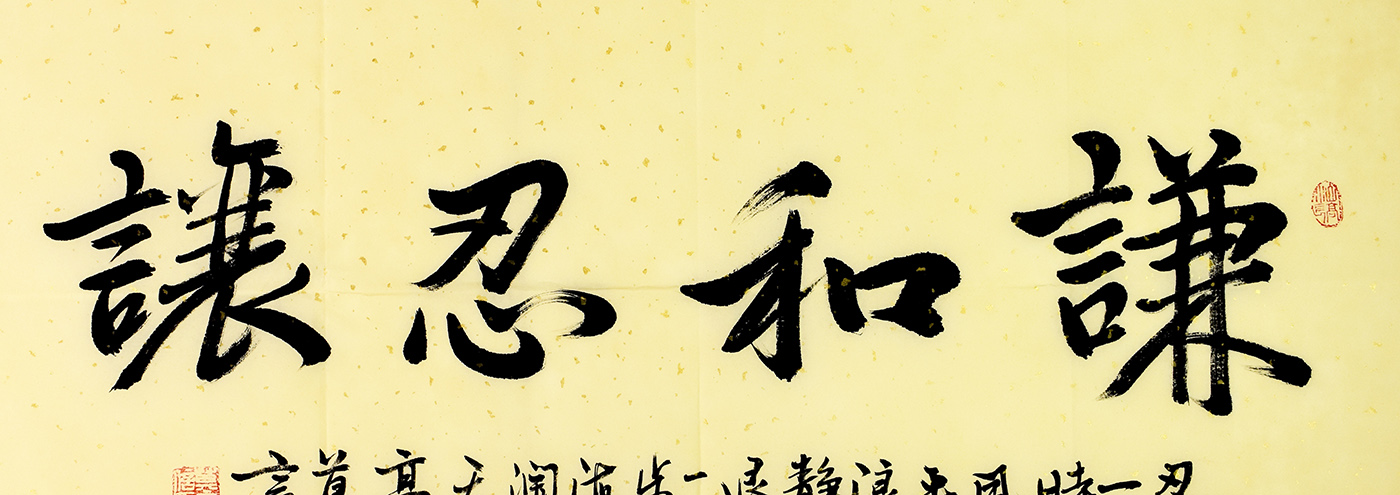 謙和忍讓
忍一時風平浪静退一步海濶天高